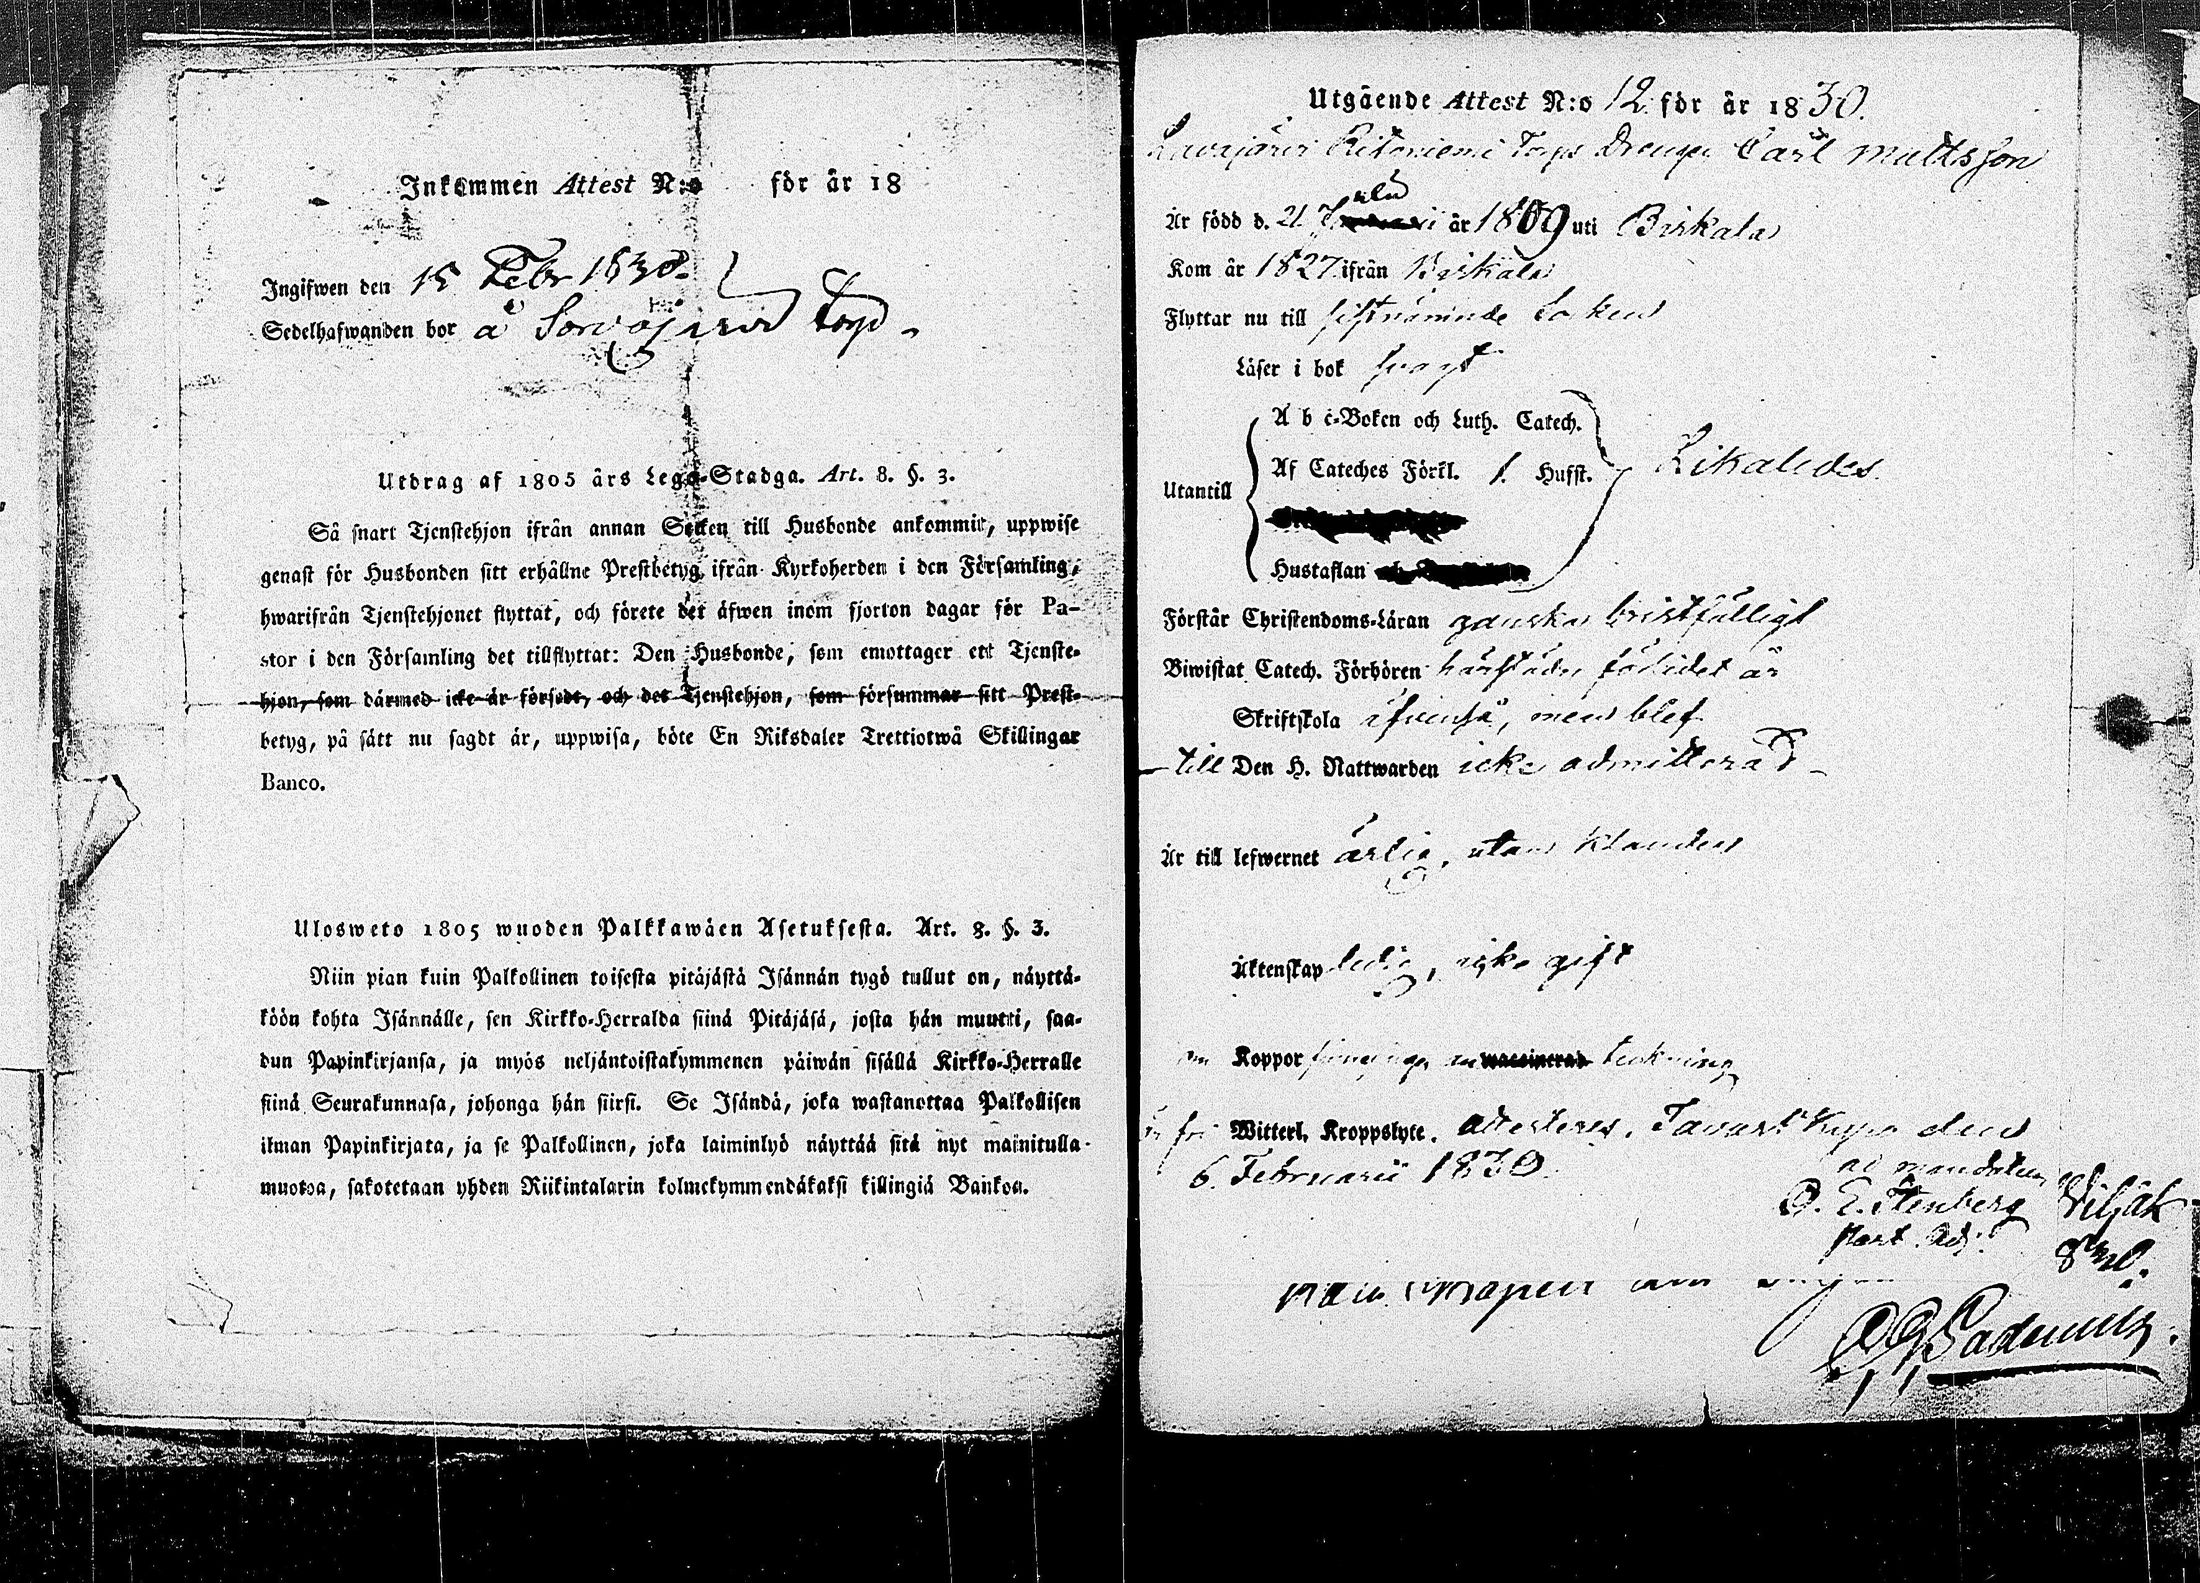 Inkommen Attest N:o för år 18
Ingifwen den 15 Febr 1830.
Sedelhafwanden bor å Sorvajärvi torp
Utdrag af 1805 års Lego-Stadga. Art. 8. §. 3.
Så snart Tjenstehjon ifrån annan Socken till Husbonde ankommit, uppwise
genast för Husbonden sitt erhållne Prestbetyg ifrån Kyrkoherden i den Församling,
hwarifrån Tjenstehjonet flyttat, och förete det äfwen inom fjorton dagar för Pa-
stor i den Församling det tillflyttat: Den Husbonde, som emottager ett Tjenste-
hjon, som därmed icke är försedt, och det Tjenstehjon, som försummar sitt Prest-
betyg, på sätt nu sagdt är, uppwisa, böte En Riksdaler Trettiotwå Skillingar
Banco.
Ulosweto 1805 wuoden Palkkawäen Asetuksesta. Art. 8. §. 3.
Niin pian kuin Palkollinen toisesta pitäjästä Isännän tygö tullut on, näyttä-
köön kohta Isännälle, sen Kirkko-Herralda siinä Pitäjäsä, josta hän muutti, saa-
dun Papinkirjansa, ja myös neljäntoistakymmenen päiwän sisällä Kirkko-Herralle
siinä Seurakunnasa, johonga hän siirsi. Se Isändä, joka wastanottaa Palkollisen
ilman Papinkirjata, ja se Palkollinen, joka laiminlyö näyttää sitä nyt mainitulla
muotoa, sakotetaan yhden Riikintalarin kolmekymmendäkaksi killingiä Bankoa.
Utgående Attest N:o 12 för år 1830.
Lavajärvi Ritoniemi Torps Drengen Carl Mattsson
Är född d. 21 år 1809 uti Birkala
Kom år 1827 ifrån Birkala
Flyttar nu till sistnämnde Socken
Läser i bok svagt
Utantill
A b c-Boken och Luth. Catech.
Af Cateches Förkl. 1. Hufst. Likaledes
Hustaflan
Förstår Christendoms-Läran ganska bristfälligt
Biwistat Catech. Förhören härstädes förledet år
Skriftskola äfvenså, men blef
till Den H. Nattwarden icke admitterad
Är till lefwernet ärlig, utan klander
Äktenskap ledig, icke gift
om Koppor finnes ingen teckning
är fri Witterl. Kroppslyte. attesteras, Tavastkyro den
6. Februarii 1830.
ad mandatum
O. E. Stenberg
Past. Adj.